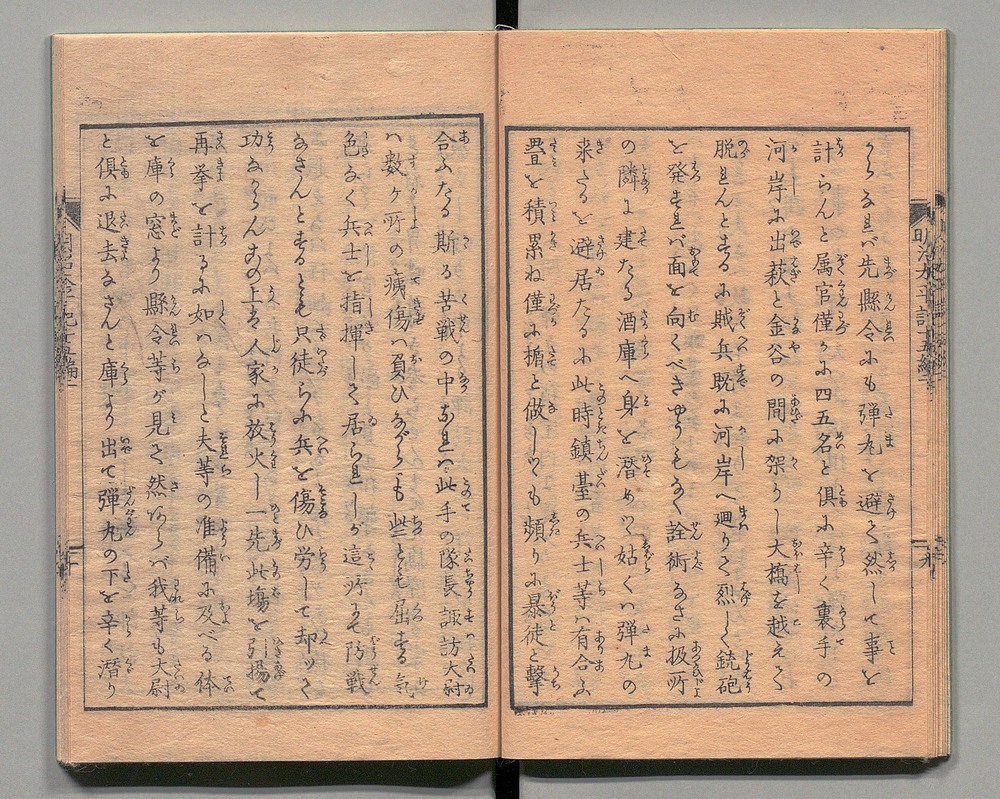 からるれバ先縣令にも弾丸を避て然して事を
計らんと属官僅かに四五名と倶に辛く裏手の
河岸に出萩と金谷の間に架かし大橋を越えて
脱れんとするに賊兵既に河岸へ廻りて烈しく銃砲
を発すれバ面を向くべきやうもなく詮術なさに扱所
の隣に建たる酒庫へ身を潜めつつ姑くハ弾丸の
来たるを避居たるに此時鎮臺の兵士等ハ有合ふ
畳を積累ね僅に楯と做しつつも頻りに暴徒と撃
合ふたる斯る苦戦の中なれバ此手の隊長諏訪大尉
ハ数ヶ所の痍傷ハ負ひながらも些とも屈する気
色なく兵士を指揮して居られしが這所にて防戦
なさんとするとも只徒らに兵を傷ひ労して却つて
功なからん 上は人家に放火し一先此塲を引揚て
再挙を計るに如ハなしと夫等の准備に及べる体
を庫の窓より縣令等が見て然ならバ我等も大尉
と倶に退去なさんと庫より出て弾丸の下を辛く潜り
明治太平記十五編
九
十